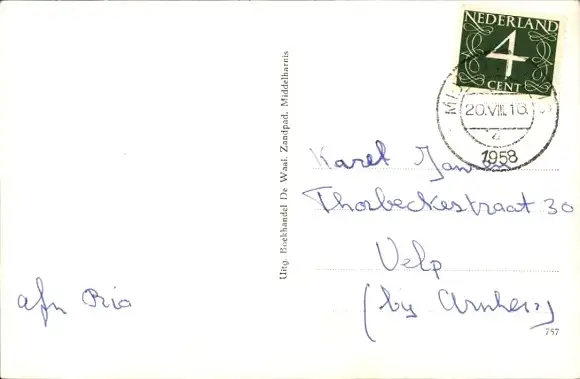 NEDERLAND
4
CENT
20.VIII.18.
1958
Uitg. Boekhandel De Waal, Zandpad, Middelharnis
Karel Jansen
Thorbeckestraat 30
Velp
(bij Arnhem)
afz Ria
757